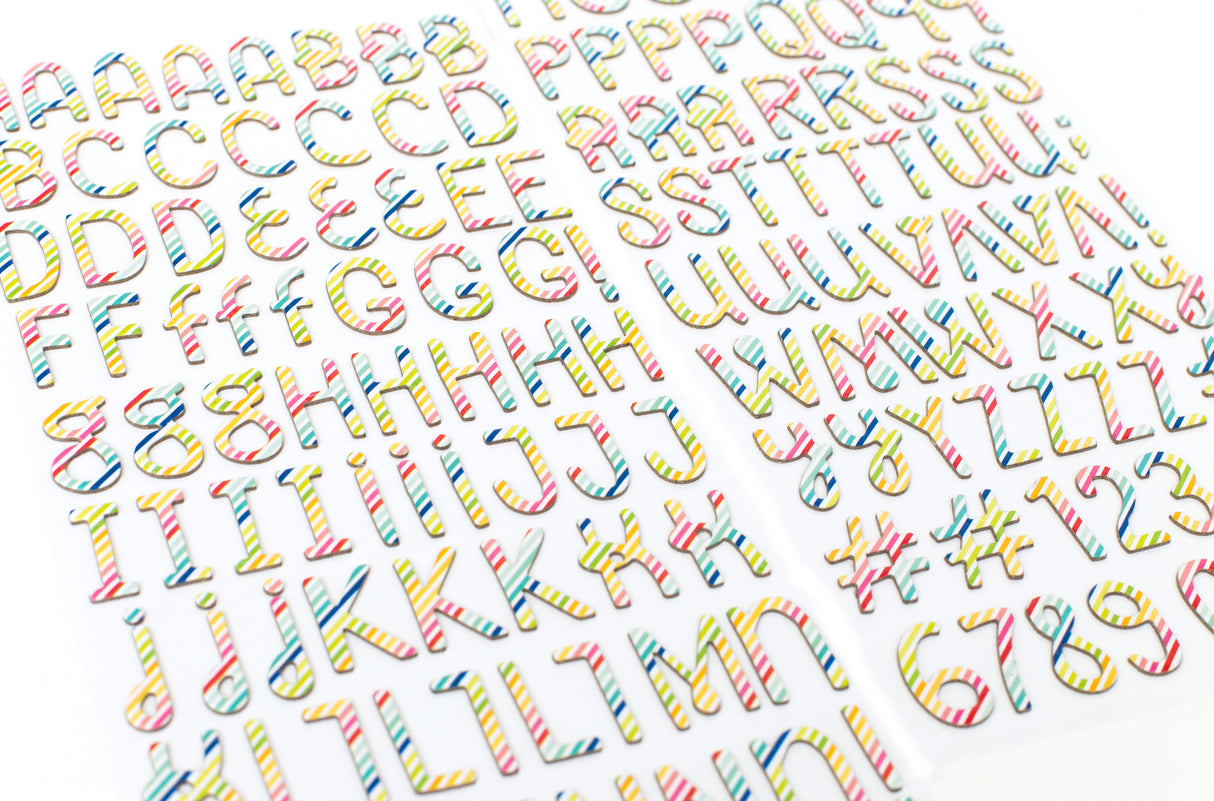 AAAAABBB
BCCCCCD
DDDEEEEE
FFfffGGG!
gggHHHHH
IIIIiiiJJJ
jjjKKKKK
KLLLLLLMn
n!
PPPPQQQq
RRRRRSSS
SSTTTTUU;
UUUVVVVV!
WMWXXy
yyYZZZ
##123
6789